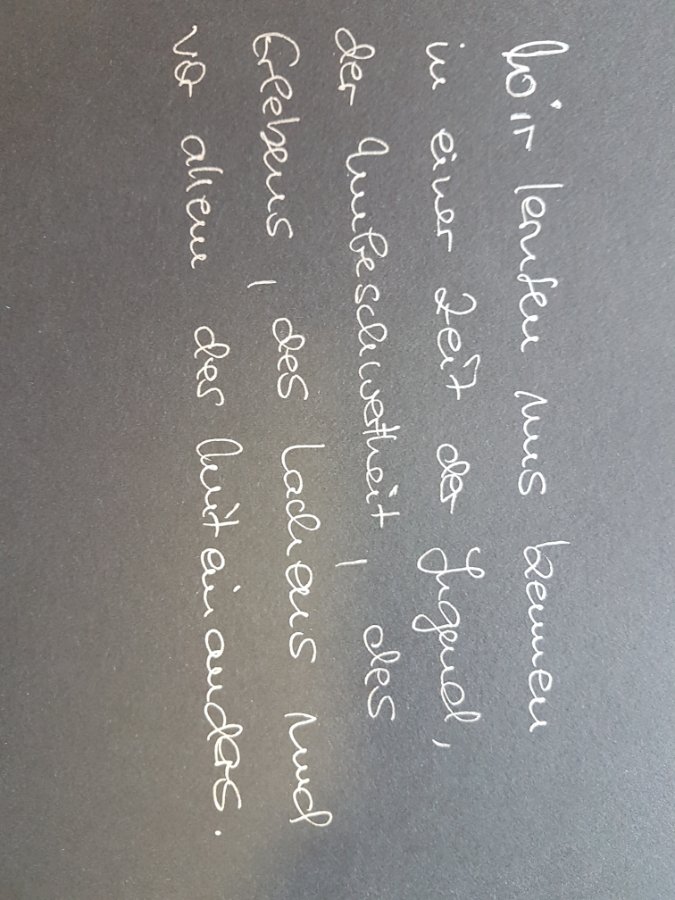 Wir lernten uns kennen
in einer Zeit der Jugend,
der Unbeschwertheit, des
Erlebens, des Lachens und
vor allem des Miteinanders.